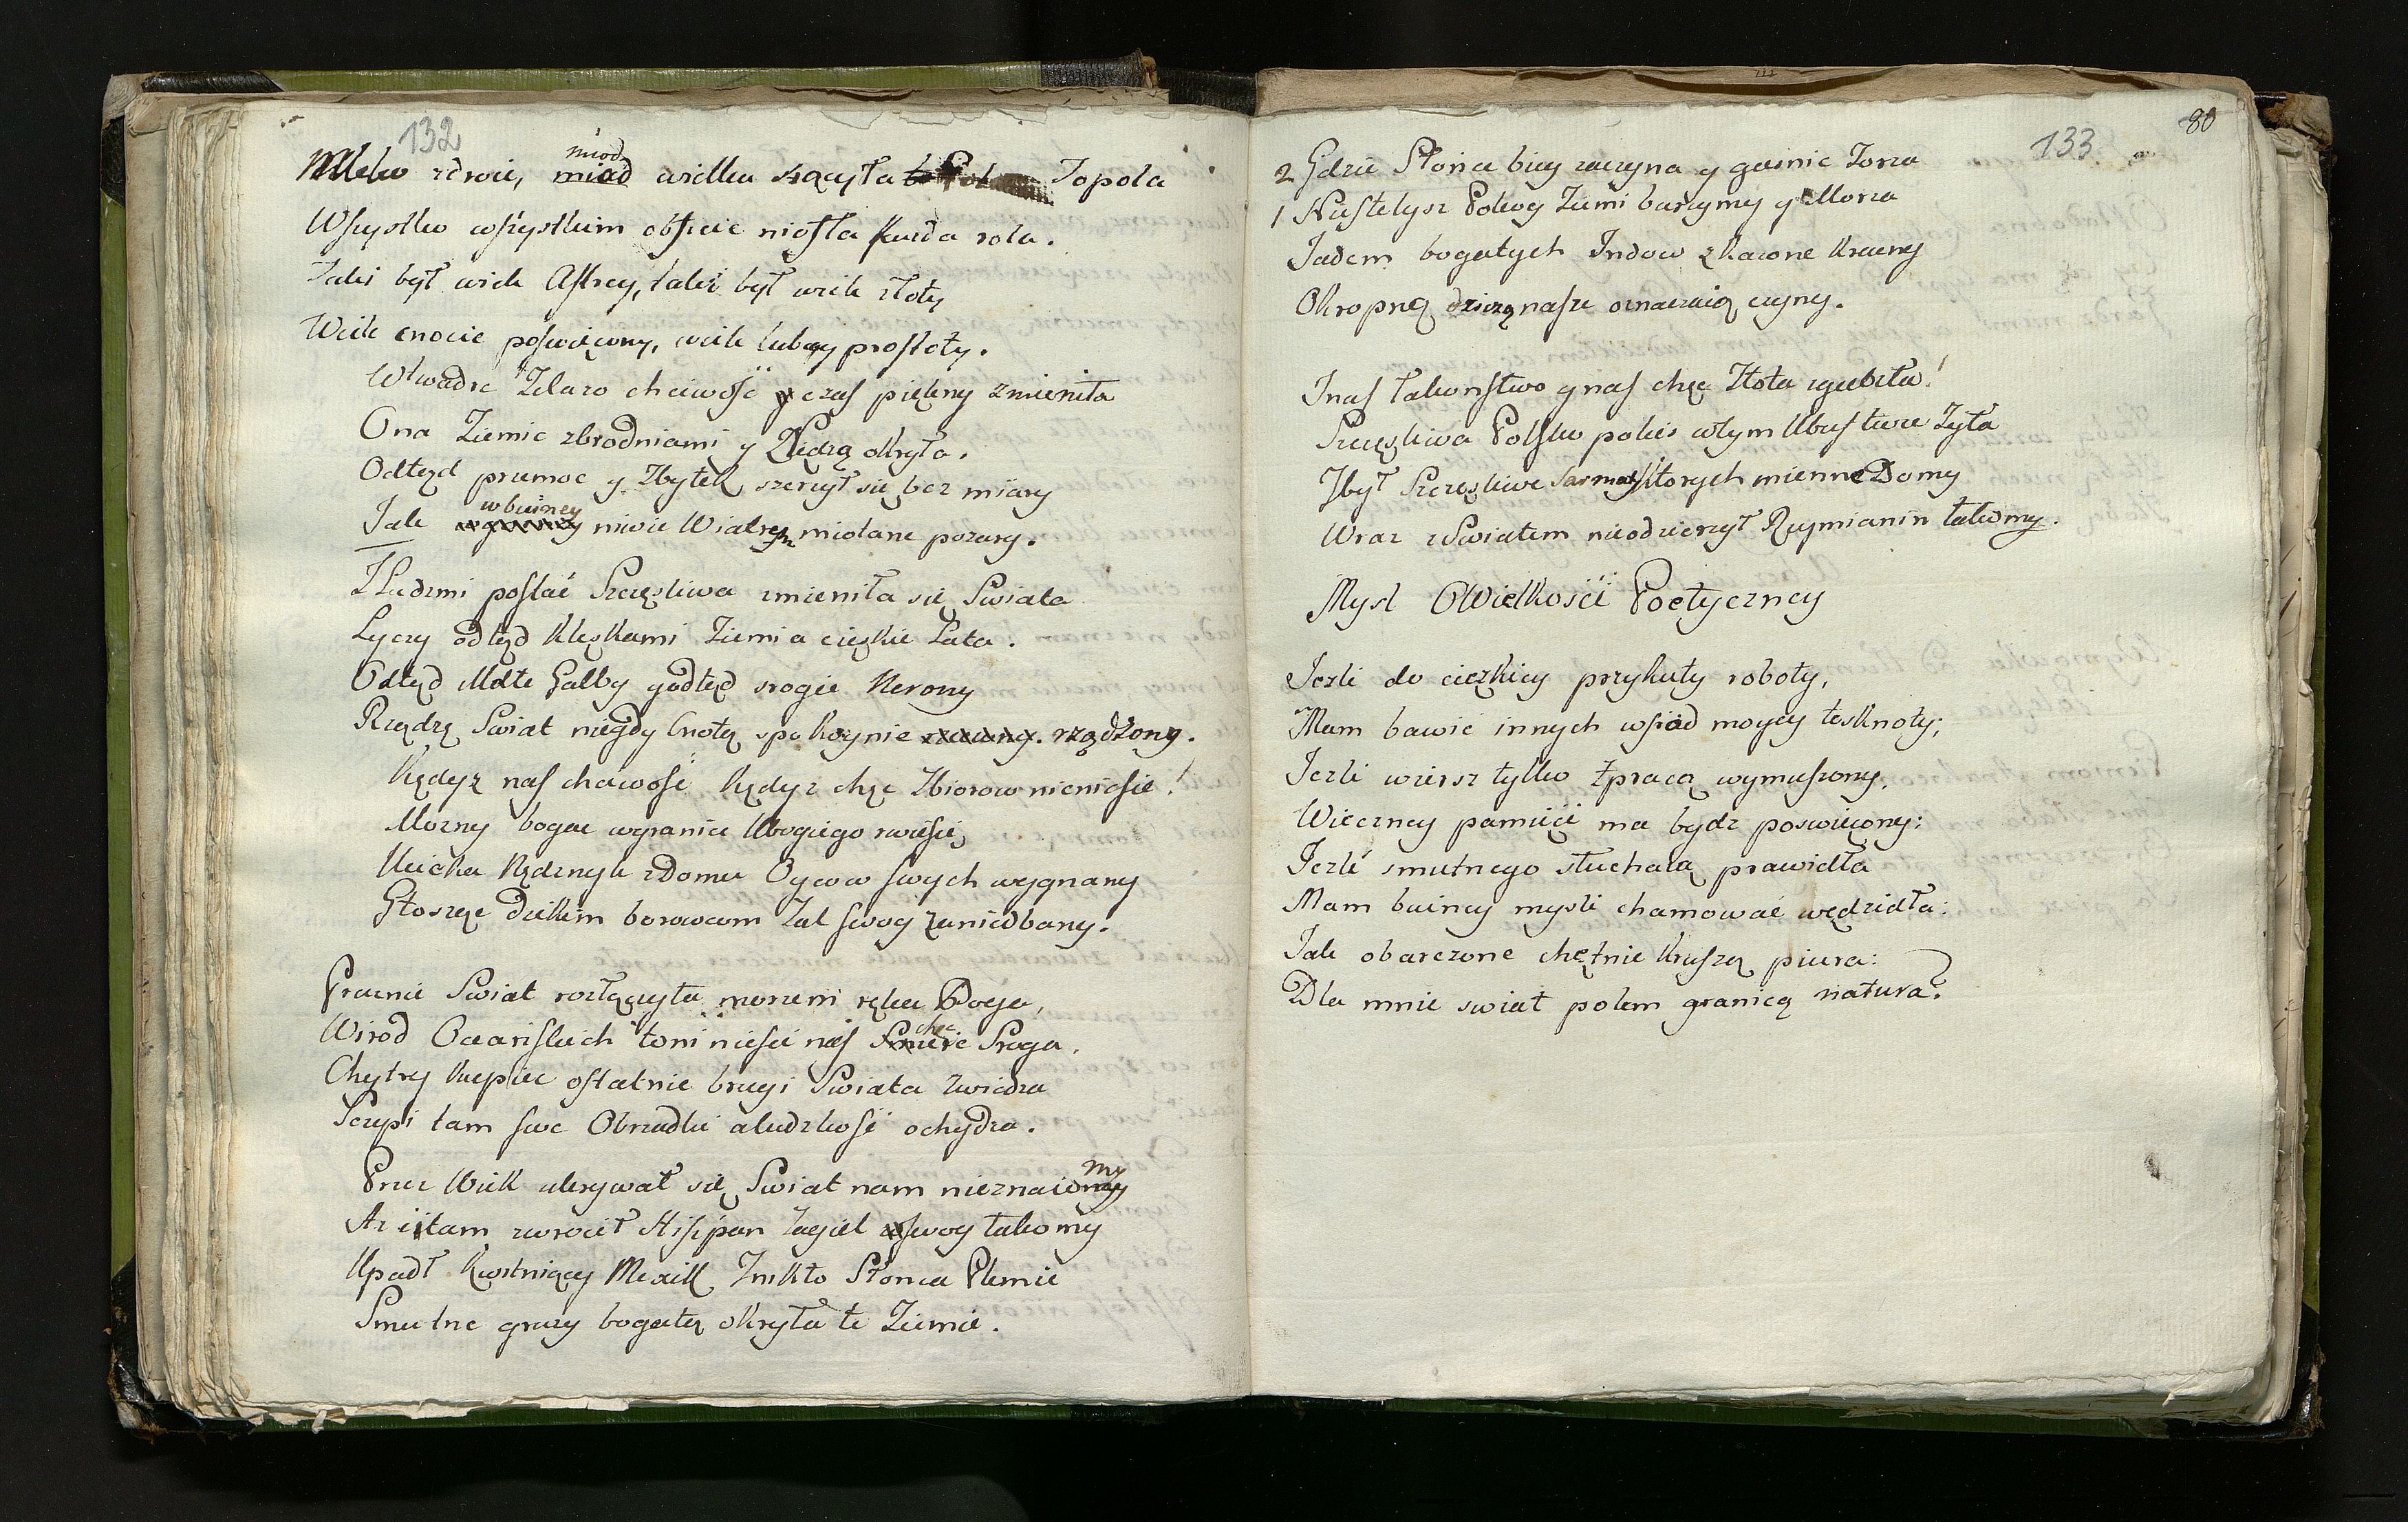 132
Mleko zdroie, miod wielka sączyła Topola
Wszystko wszystkim obficie niosła każda rola.
Taki był wiek Astrey, taki był wiek złoty
Wiek cnocie poświęcony, wiek lubey prostoty.
W twarde Żelazo chciwość czas piękny zmieniła
Ona Ziemie zbrodniami y Nędzą okryła.
Odtąd przemoc y Zbytek szerzył się bez miary
Jak w buiney niwie Wiatrem miotane pozary.
Z Ludzmi postać Szczęsliwa zmieniła się Swiata
Lyczy odtąd klęskami Ziemia cięzkie Lata.
Odtąd Mdłe Galby y odtąd srogie Nerony
Rządzą Swiat niegdy Cnotą spokoynie rządzony.
Kędyz nas chciwość kędyz chęc Zbiorow nieniesie!
Mozny bogac wgranice Ubogiego wniesie
Ucieka Nędznyk z Domu Oycow swych wygnany
Głosząc dzikim borowcom Zal swoy zaniedbany.
Proznie Swiat rozłączyła morzem ręka Boga,
Wsrod Oceanskich toni niesie nas chęc Sroga.
Chytry kupiec ostatnie brzegi Swiata zwiedza
Sczepi tam swe Obrzadki a ludzkość ochydza.
Przez Wiek ukrywał się Swiat nam nieznaiomy
my
Az i tam zwrocił Hiszpan Zagiel swoy łakomy
Upadł kwitnący Mexik Znikło Słonca Plemie
Smutne gruzy bogatą okryła te Ziemie.
80
133
2 Gdzie Słońce bieg zaczyna y gasnie Zorza
1 Nastelysz Połowy Ziemi burzymy y Morza
Jadem bogatych Indow zkazone krainy
Okropną dziczą nasze oznaczaią czyny.
I nas łakomstwo y nas chęc Złota zgubiła!
Szczęsliwa Polsko pokis w tym Ubustwie Żyła
Zbył Szczesliwe Sarmaty ktorych mienne Domy
Wraz z Swiatem nieodzierzył Rzymianin łakomy.
Mysl O Wielkości Poetyczney
Iezli do cięzkiey przykuty roboty,
Mam bawić innych wsiod moyey tesknoty;
Iezli wiersz tylko z pracą wymuszony,
Wieczney pamięci ma bydz poswięcony;
Iezli smutnego słuchaią prawidła
Mam buiney mysli chamować wędzidła:
Jak obarczone chętnie kruszą piura:
Dla mnie swiat polem granicą natura.